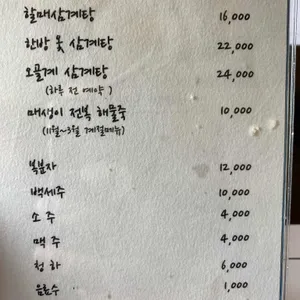 할매삼계탕 16,000
한방 옻 삼계탕 22,000
오골계 삼계탕 24,000
(하루 전 예약)
매생이 전복 해물죽 10,000
(11월~3월 계절메뉴)
복분자 12,000
백세주 10,000
소주 4,000
맥주 4,000
청하 6,000
음료수 1,000